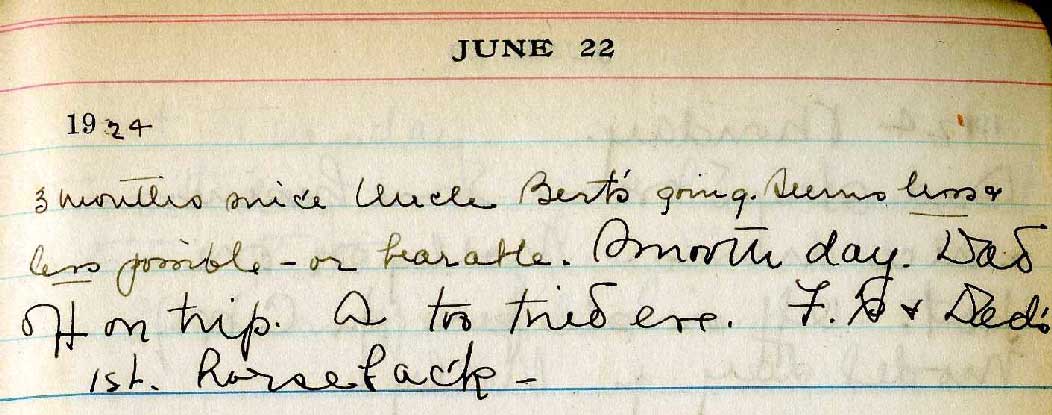 JUNE 22
1924
3 months since Uncle Bert's going. Seems less &
less possible - or bearable. Smooth day. Dad
off on trip. D too tired eve. F. & Dad's
1st. horseback -